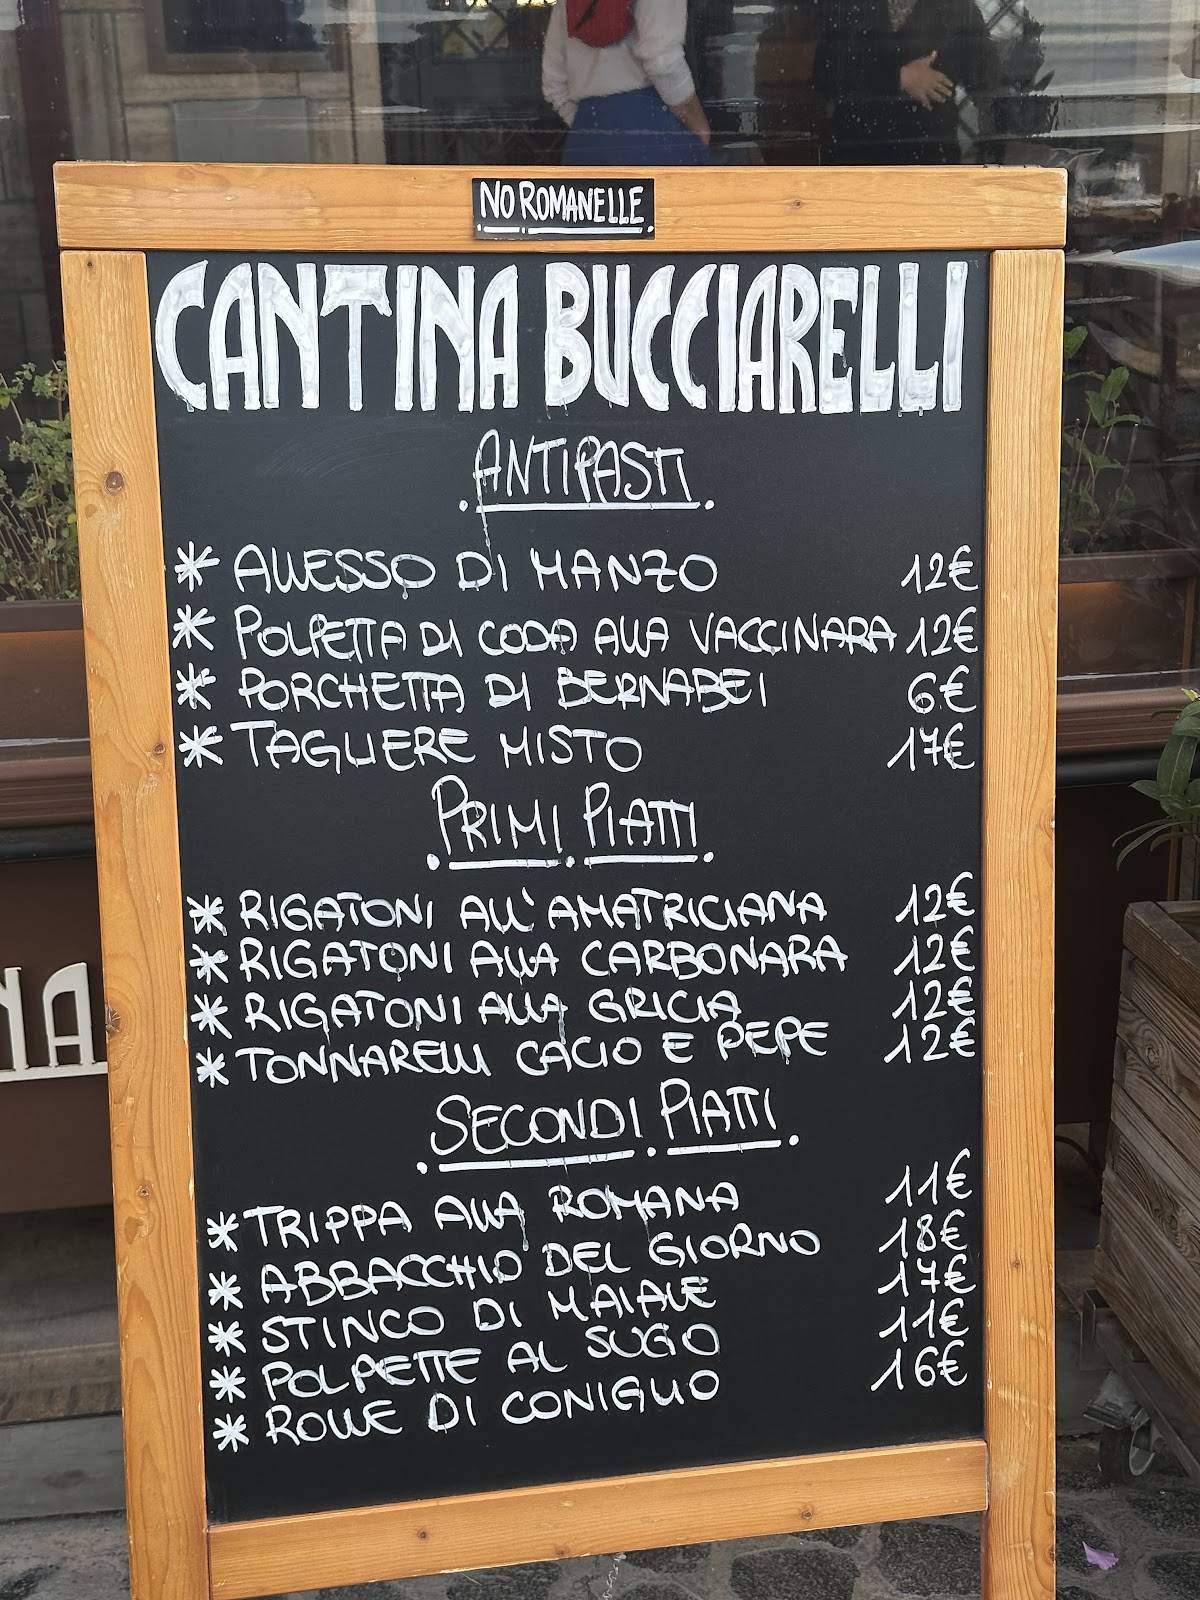 NO ROMANELLE
CANTINA BUCCIARELLI
ANTIPASTI
* ALLESSO DI MANZO 12€
* POLPETTA DI CODA ALLA VACCINARA 12€
* PORCHETTA DI BERNABEI 6€
* TAGLIERE MISTO 17€
PRIMI PIATTI
* RIGATONI ALL'AMATRICIANA 12€
* RIGATONI ALLA CARBONARA 12€
* RIGATONI ALLA GRICIA 12€
* TONNARELLI CACIO E PEPE 12€
SECONDI PIATTI
* TRIPPA ALLA ROMANA 11€
* ABBACCHIO DEL GIORNO 18€
* STINCO DI MAIALE 17€
* POLPETTE AL SUGO 11€
* ROLLE DI CONIGLIO 16€
NA